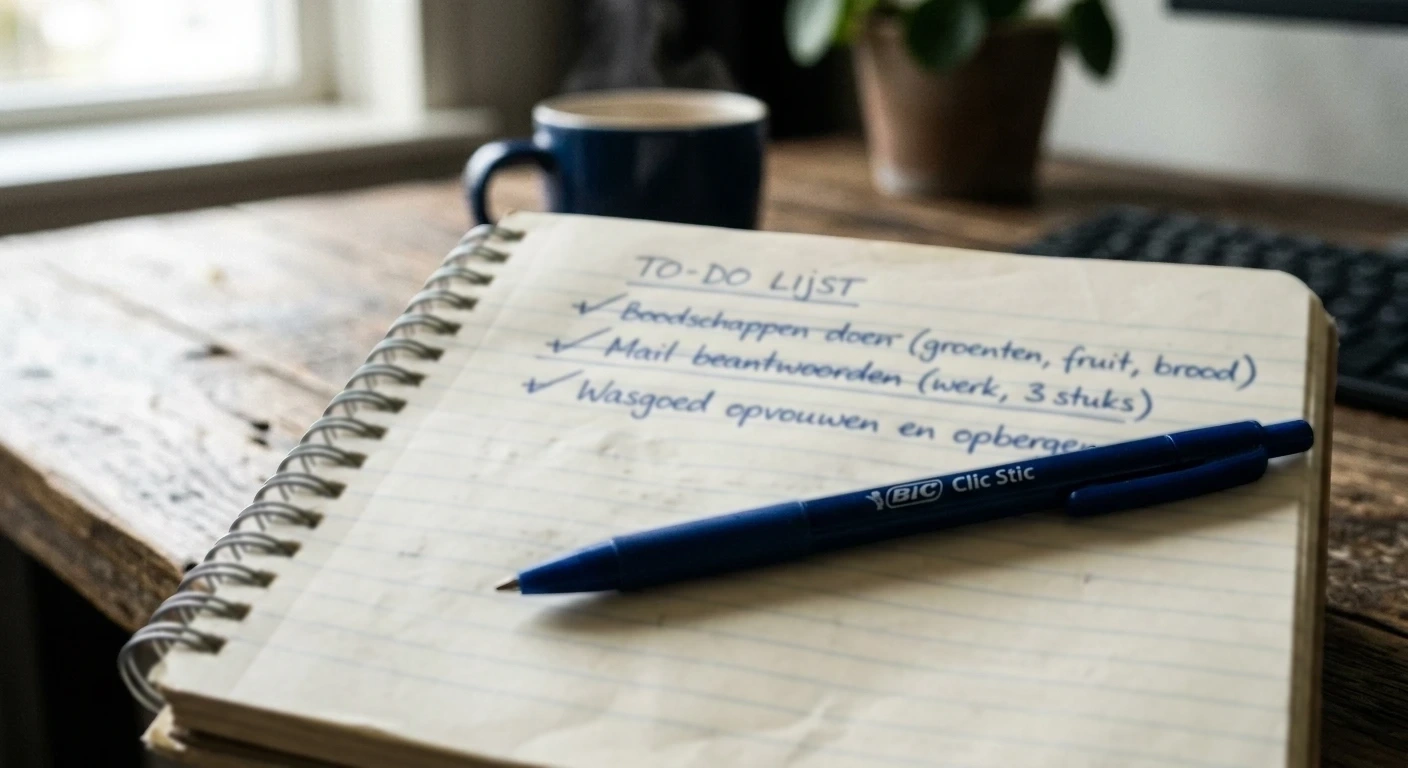 TO-DO LIJST
✓ Boodschappen doen (groenten, fruit, brood)
✓ Mail beantwoorden (werk, 3 stuks)
✓ Wasgoed opvouwen en opbergen
BIC Clic Stic